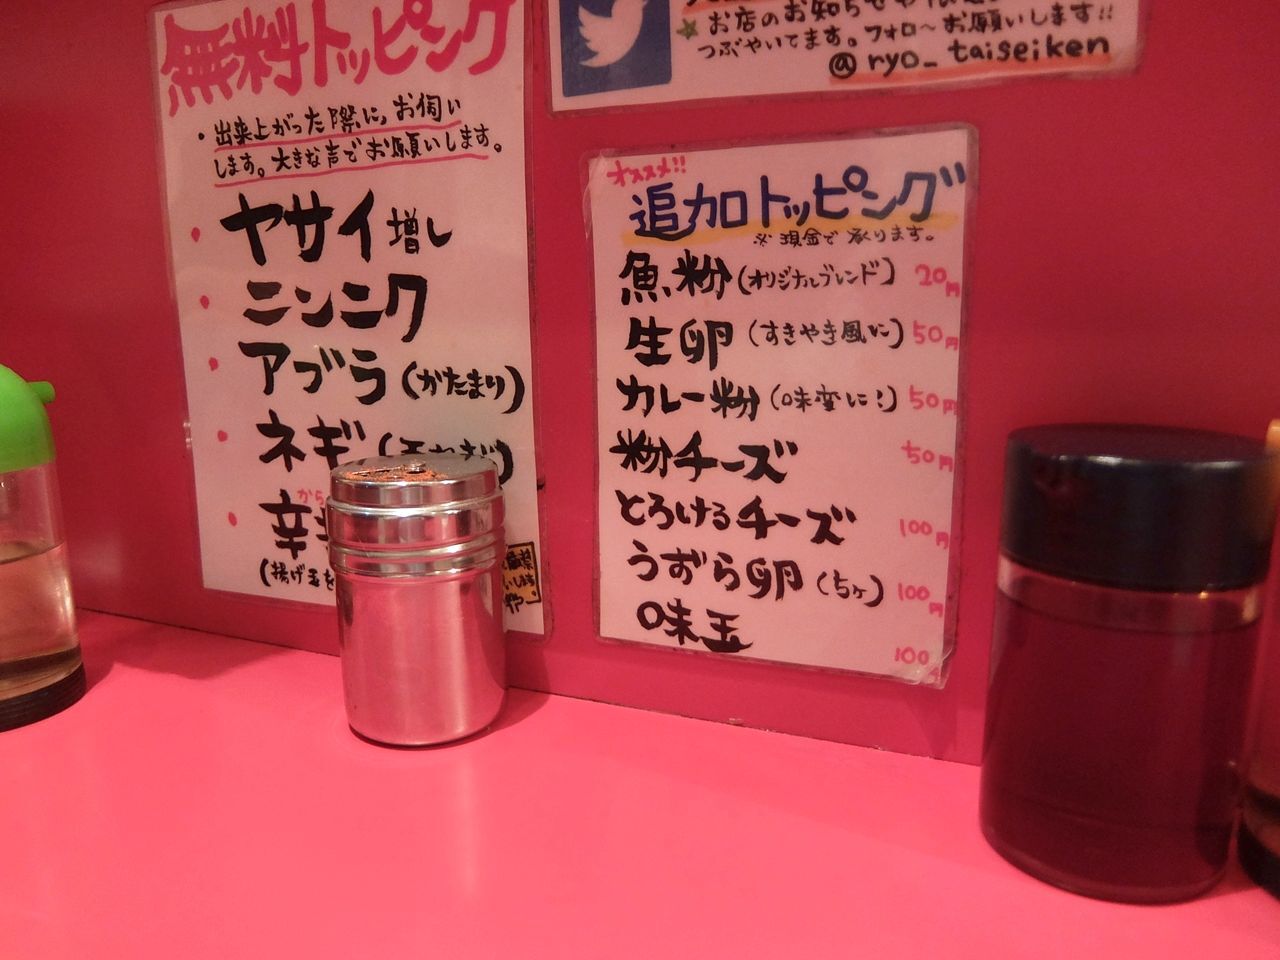 無料トッピング
・出来上がった際に、お伺い
します。大きな声でお願いします。
ヤサイ増し
ニンニク
アブラ(かたまり)
ネギ
辛
(揚げ玉を
★お店のお知らせや
つぶやいてます。フォロ～お願いします!!
@ryo_taiseiken
オススメ!!
追加トッピング
※現金で承ります。
魚粉(オリジナルブレンド) 20円
生卵(すきやき風に) 50円
カレー粉(味変に!) 50円
粉チーズ 50円
とろけるチーズ 100円
うずら卵(5ヶ) 100円
味玉 100